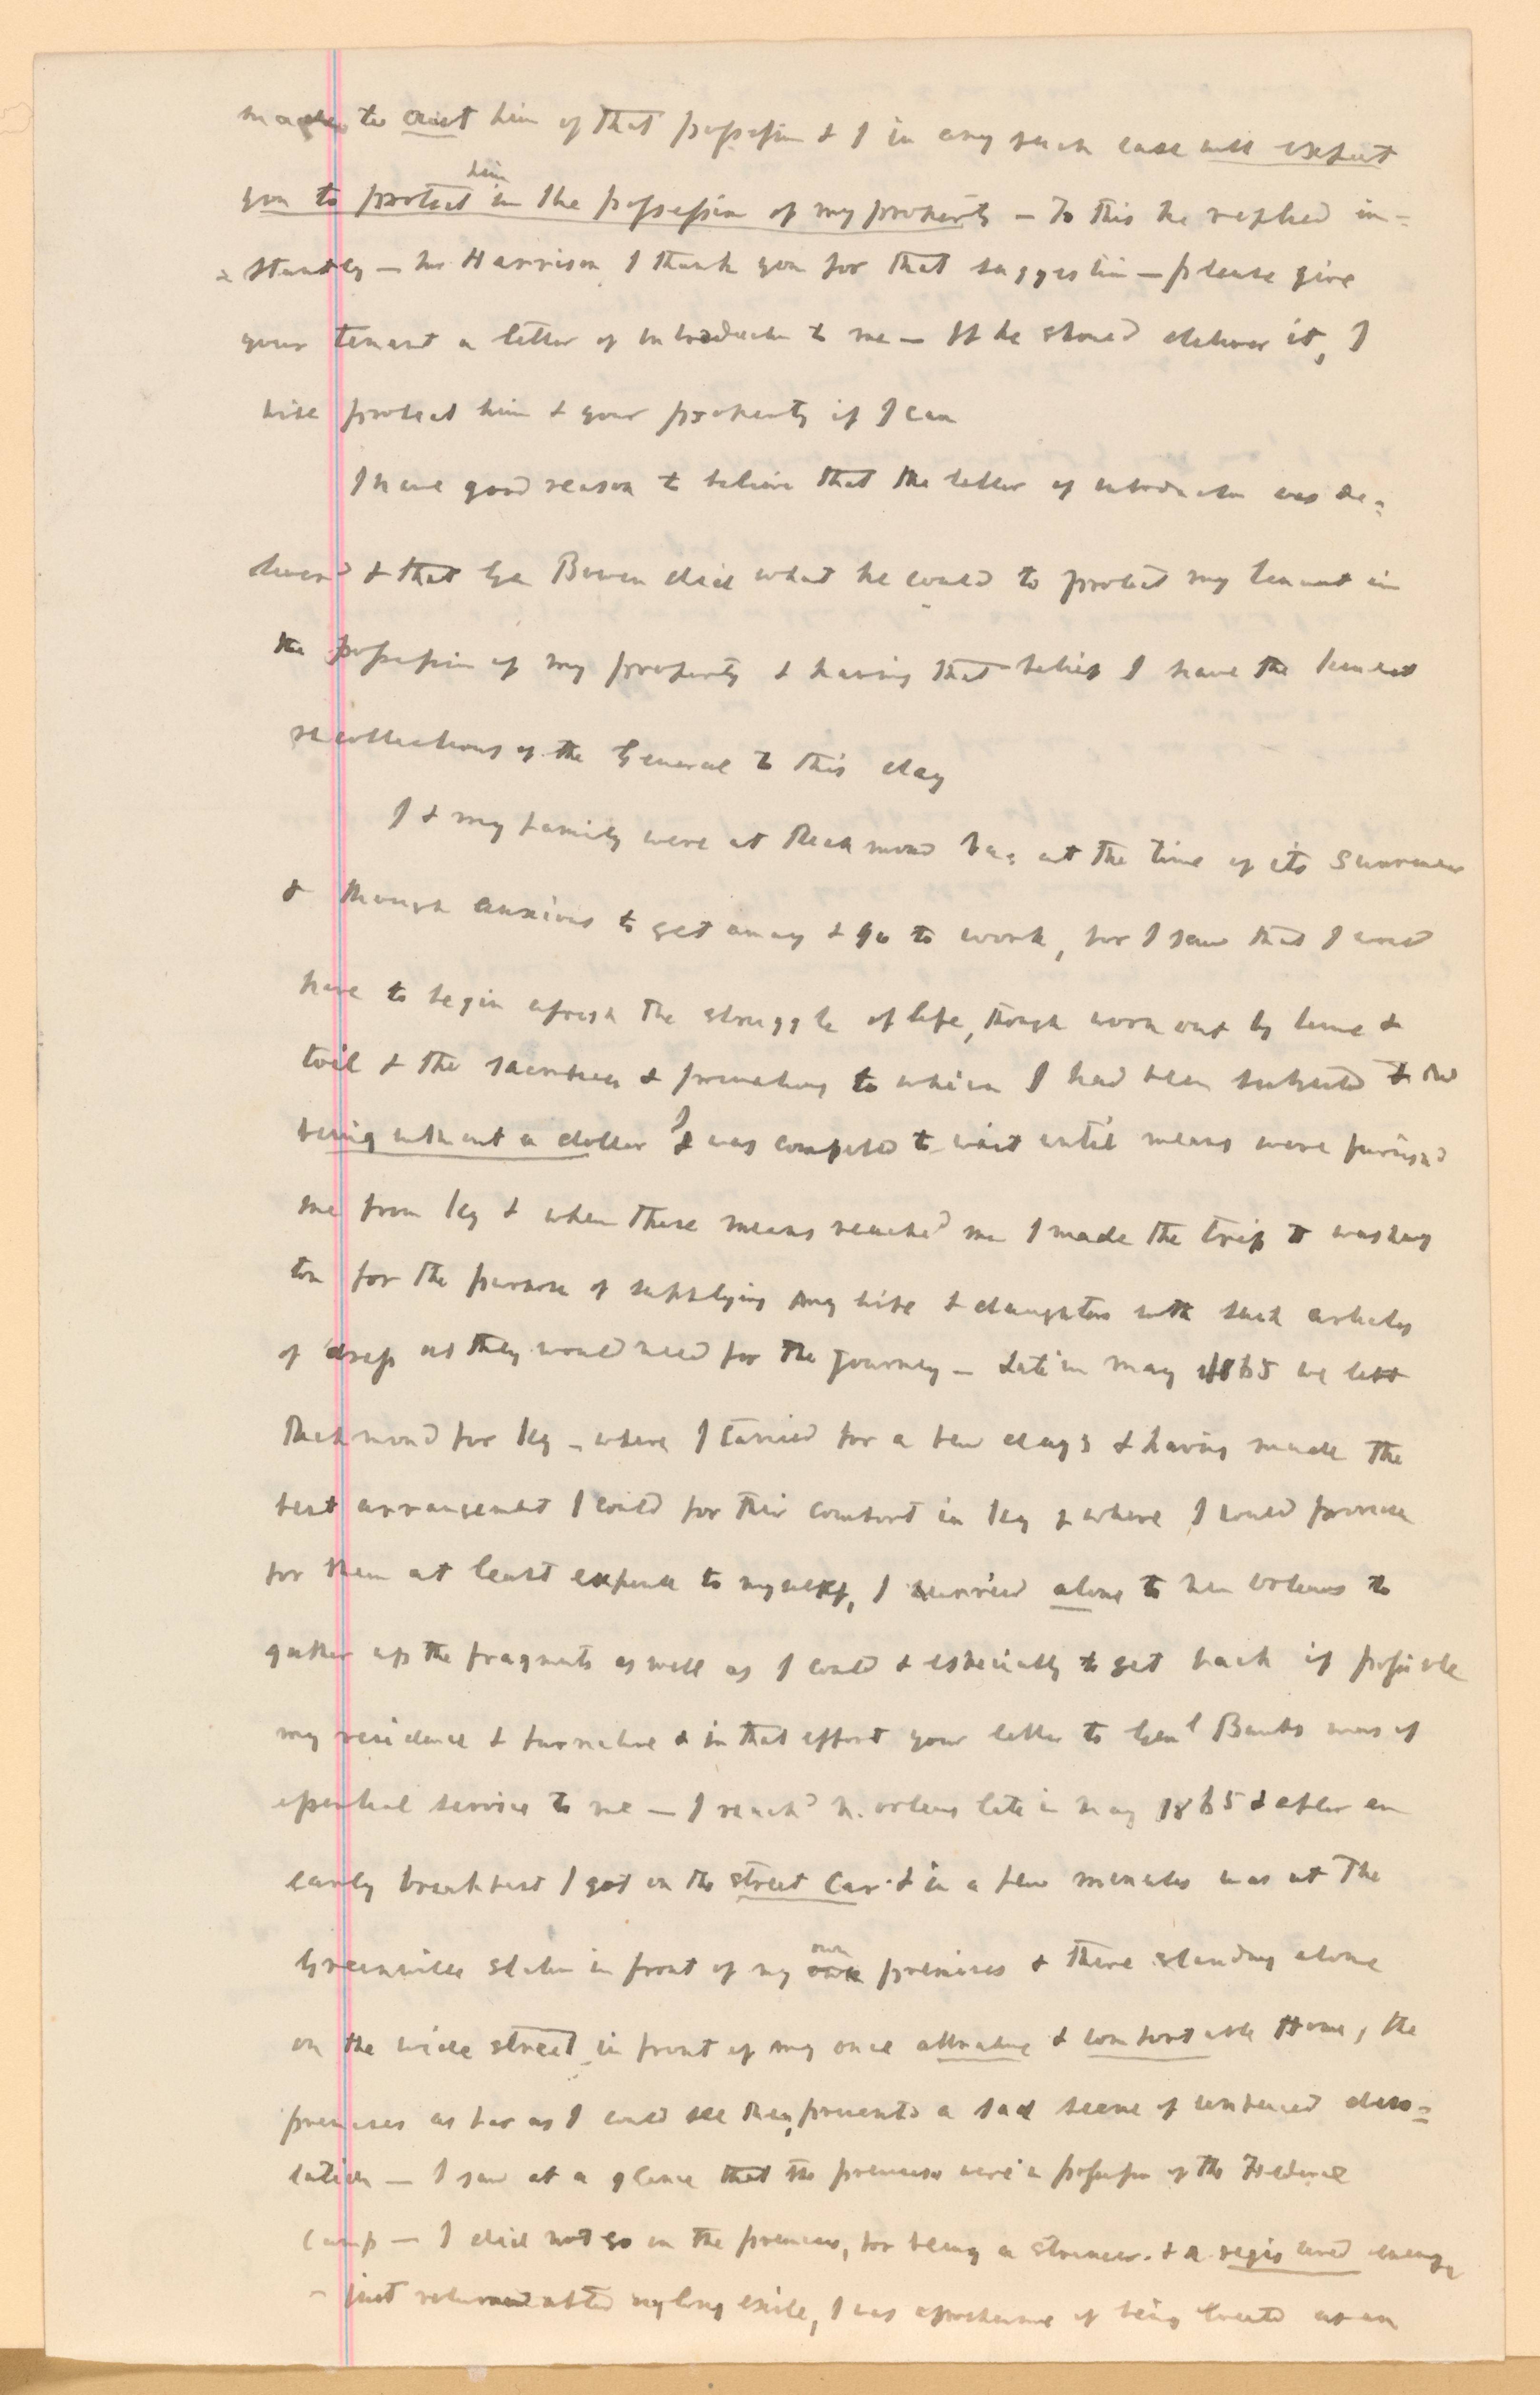 to oust him of that possession & I in any such case will expect
you to protect him in the possession of my property — To this he replied in=
= stantly — Mr Harrison I thank you for that suggestion — please give
your tenant a letter of introduction to me — If he should deliver it, I
will protect him & your property if I can
I have good reason to believe that the letter of introduction was de=
livered & that Gen did what he could to protect my tenant in
the possession of my property & having that belief I have the kindest
recollections of the General to this day
I & my family were at Richmond Va: at the time of its surrender
& though anxious to get away & go to work, for I saw that I would
have to begin afresh the struggle of life, though worn out by time &
toil & the sacrifices & privations to which I had been subjected &
being without a dollar I & was compelled to wait until means were furnished
me from Ky & when these means reached me I made the trip to Washing
ton for the purpose of supplying my wife & daughters with such articles
of dress as they would need for the journey — Late in May 1865 we left
Richmond for Ky — where I tarried for a few days & having made the
best arrangement I could for their comfort in Ky & where I could provide
for them at least expense to myself, I hurried alone to New Orleans to
gather up the fragments as well as I could & especially to get back if possible
my residence & furniture & in that effort your letter to Genl Banks was of
essential service to me — I reachd N. Orleans late in May 1865 & after an
early breakfast I got on the street car & in a few minutes was at the
Greenville station in front of my own own premises & there standing alone
on the wide street in front of my once attractive & comfortable Home, the
premises as far as I could see them, presented a sad scene of continued deso=
lation — I saw at a glance that the premises were in possession of the Federal
Camp — I did not go in the premises, for being a stranger & a registered enemy
— just returned after my long exile, I was apprehensive of being treated as an